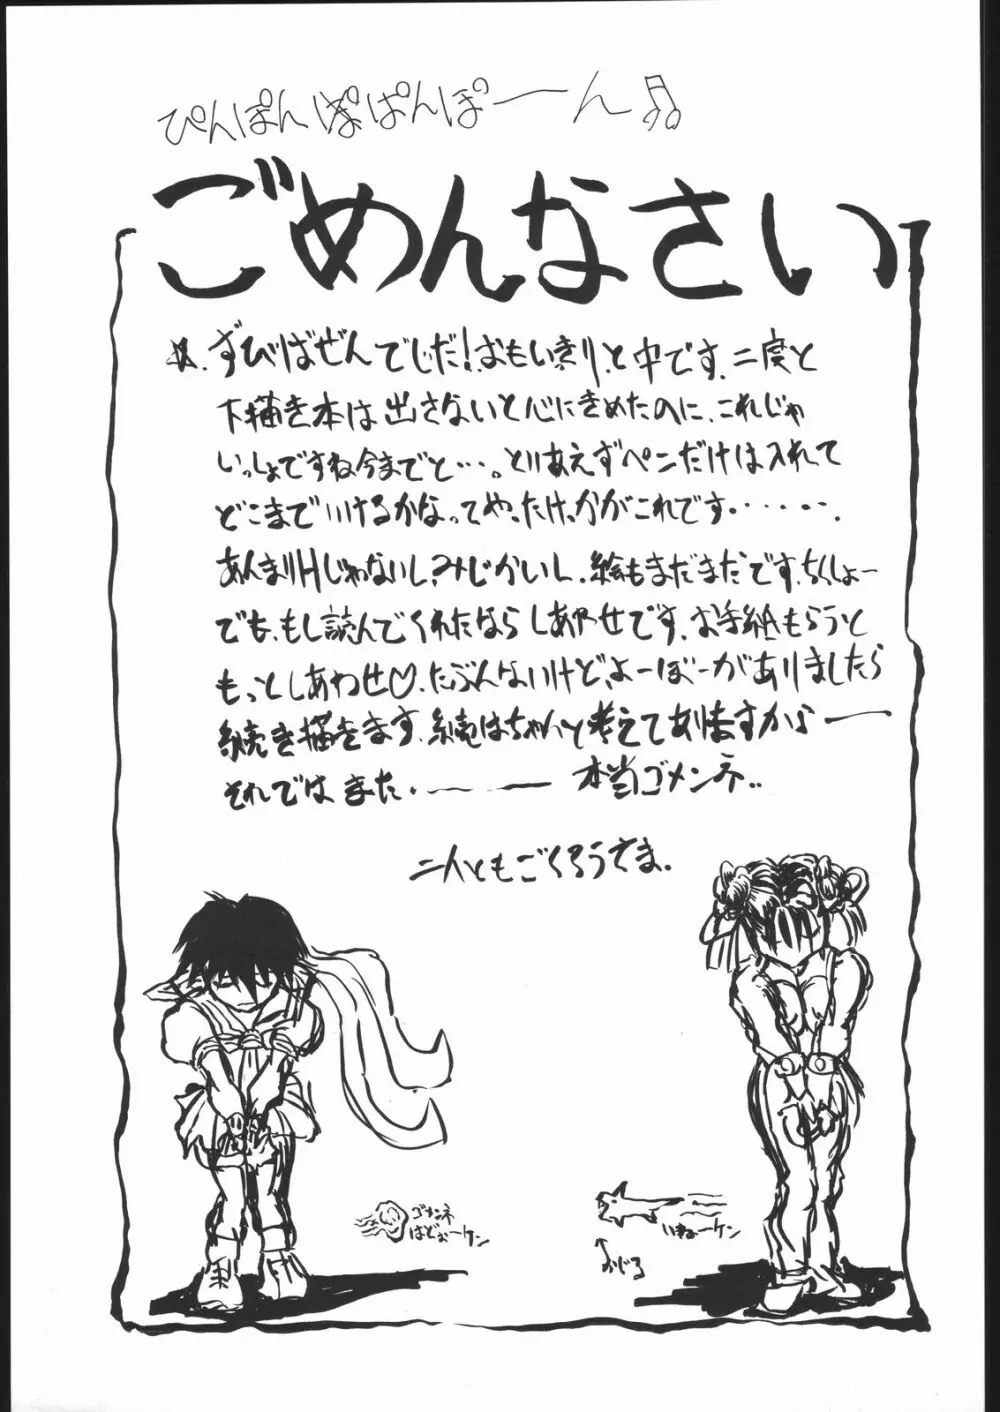 ぴんぽんぱぱんぽーん♫
ごめんなさい
☆. ずびばぜんでじだ！おもいきりと中です。二度と
下描き本は出さないと心にきめたのに、これじゃ
いっしょですね今までと…。とりあえずペンだけは入れて
どこまでいけるかなってやったけっかがこれです・・・・・・
あんまりHじゃないし？みじかいし、絵もまだまだです、ちくしょー
でも、もし読んでくれたなら しあわせです。お手紙もらうと
もっとしあわせ♡、たぶんないけど、よーぼーがありましたら
続き描きます、続はちゃんと考えてありますから――
それでは また・――― 本当ゴメンネ..
二人ともごくろうさま.
ゴメンネ
はどぉーケン
いきぉーケン
おじる